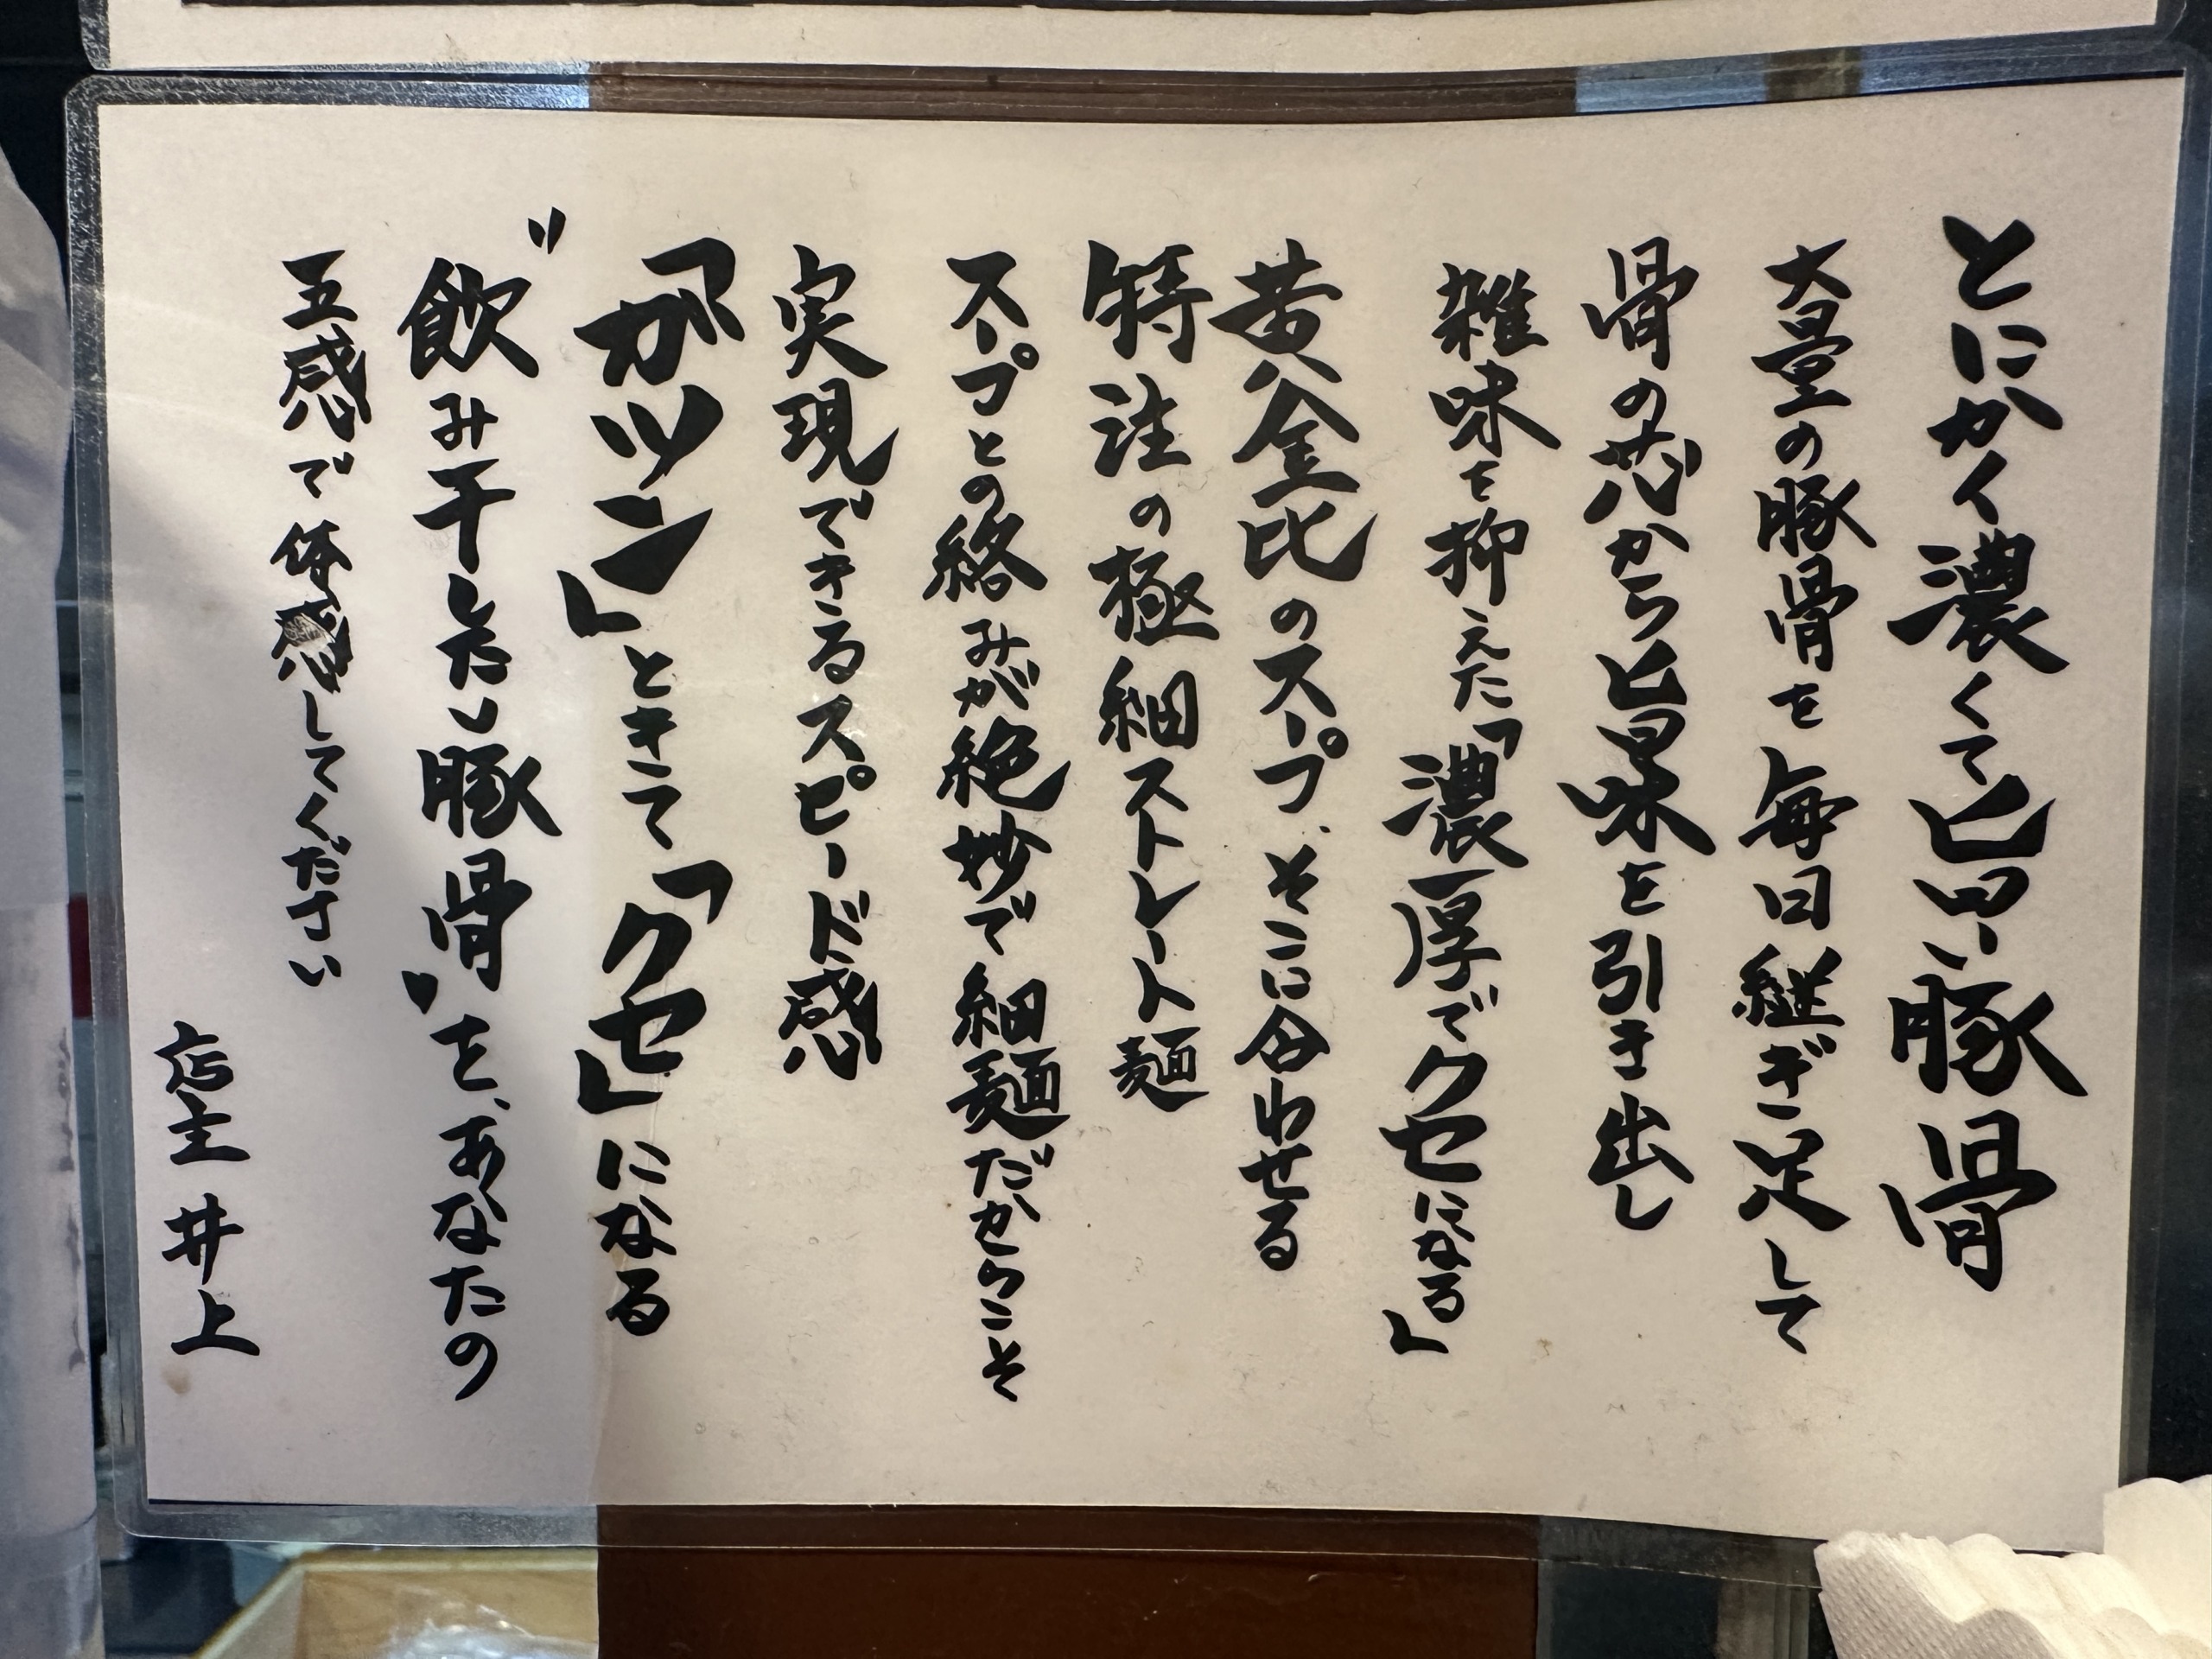 とにかく濃くて旨い豚骨
大量の豚骨を毎日継ぎ足して
骨の芯から旨味を引き出し
雑味を抑えた「濃厚でクセになる」
黄金比のスープ、そこに合わせる
特注の極細ストレート麺
スープとの絡みが絶妙で細麺だからこそ
実現できるスピード感
「ガツン」ときて「クセ」になる
"飲み干したい豚骨"を、あなたの
五感で体感してください
店主 井上